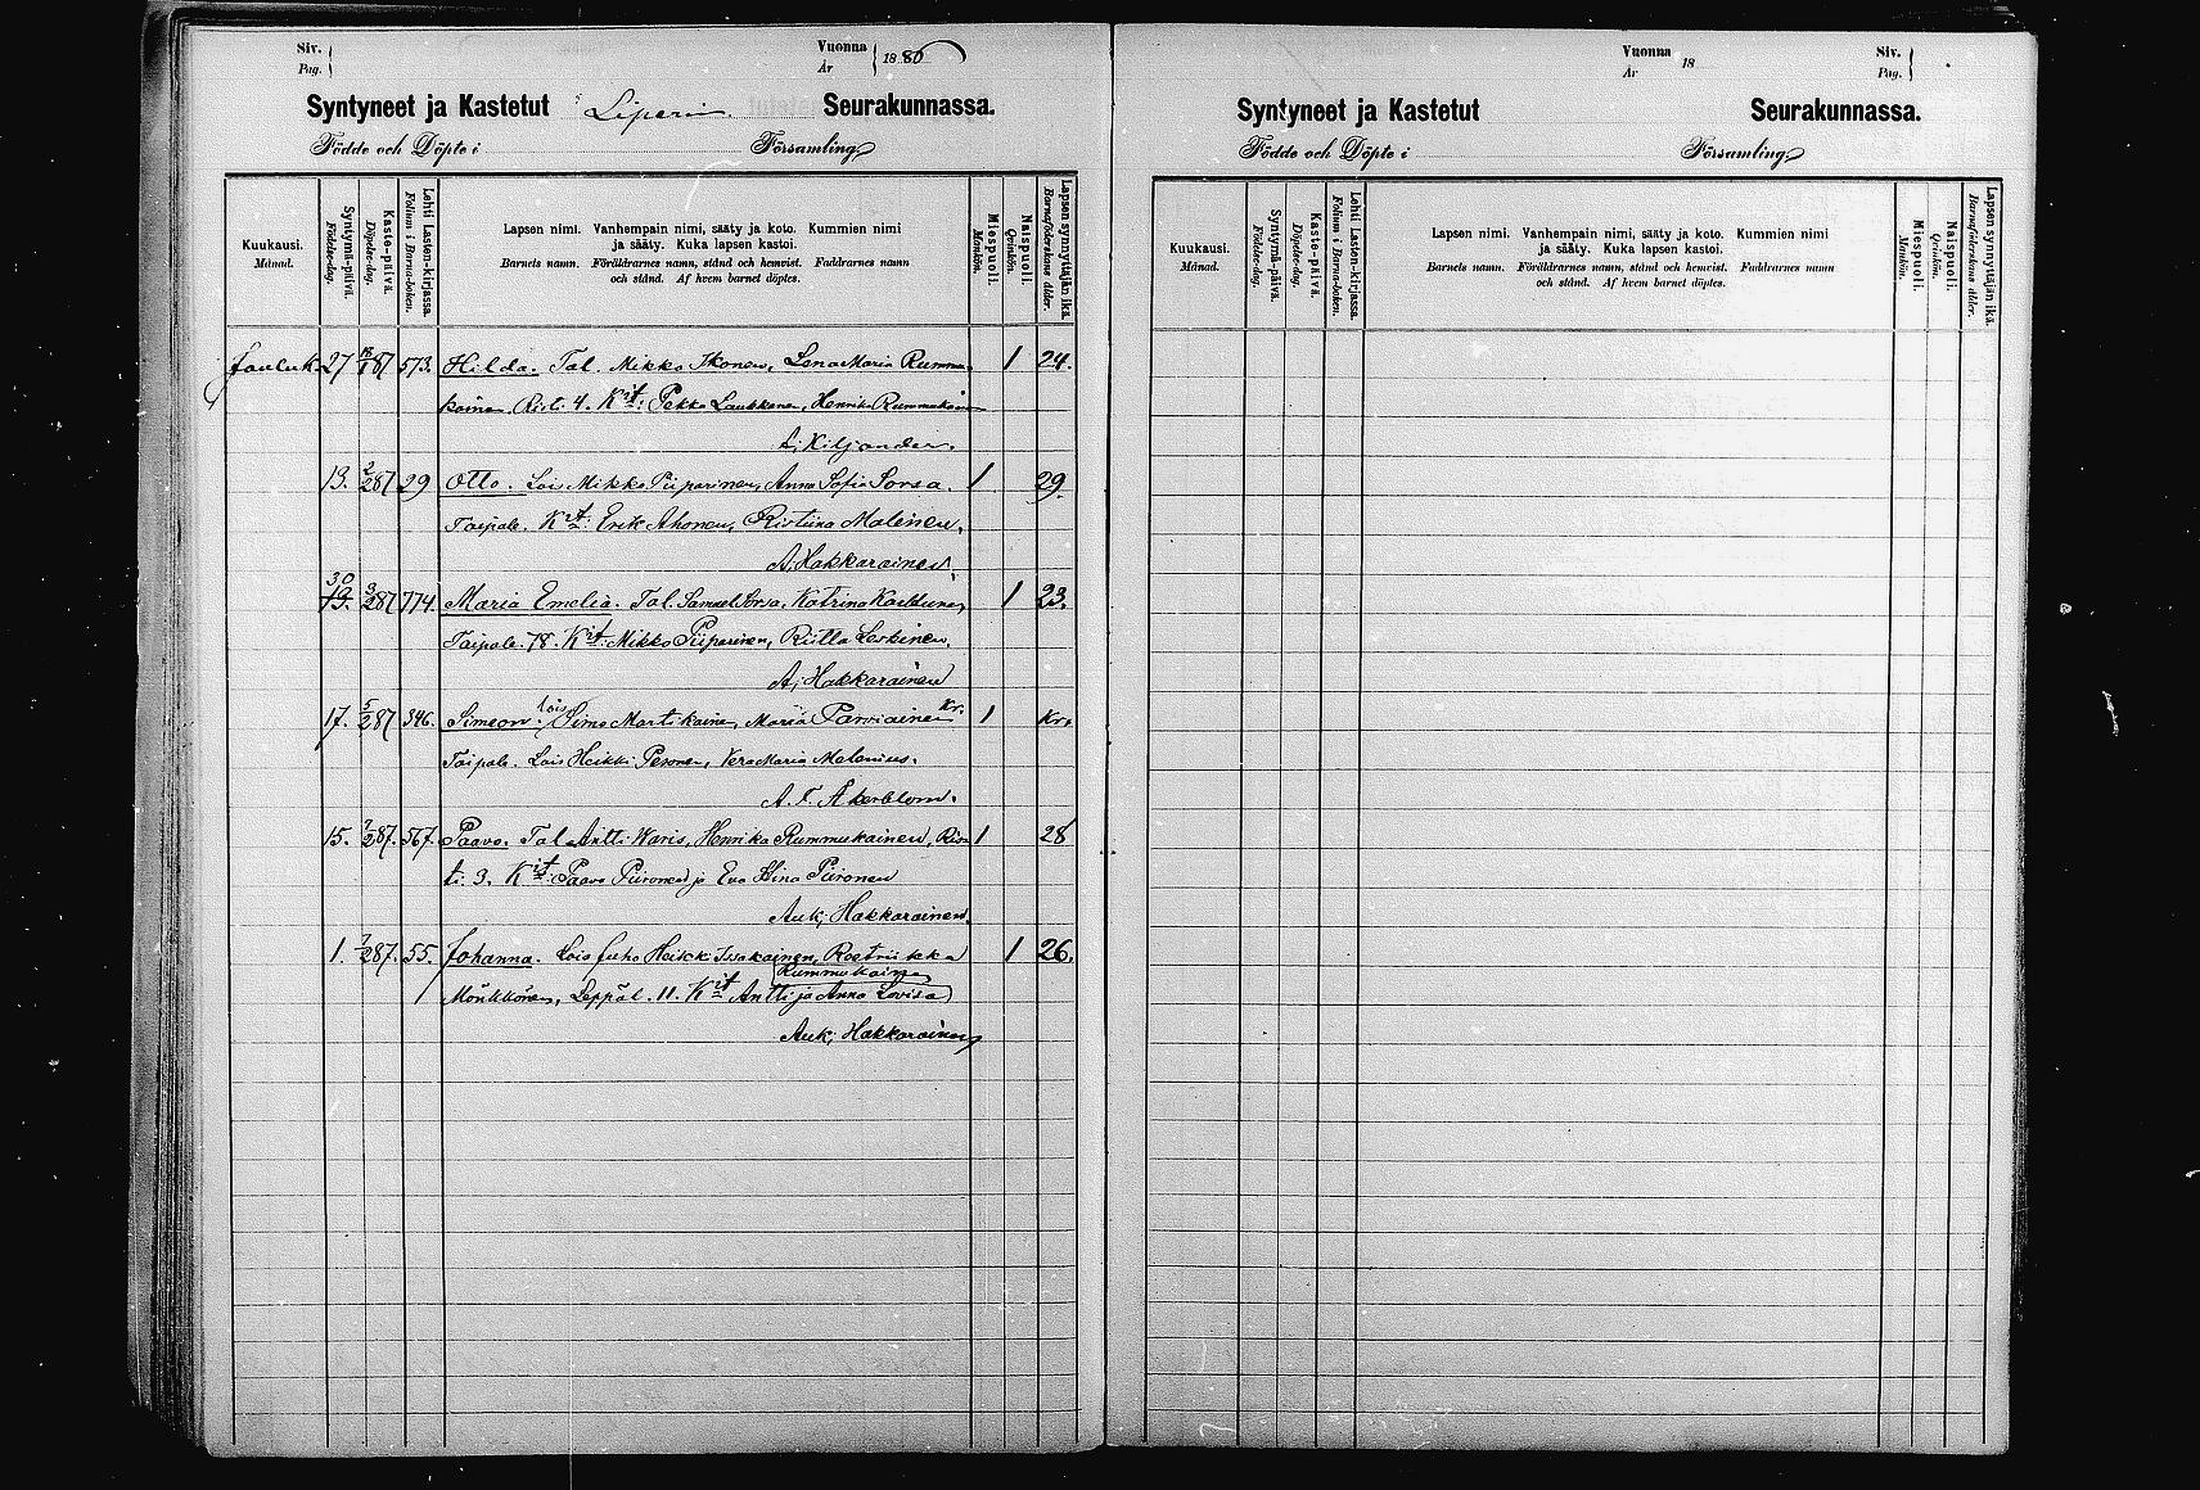 Siv.
Pag.
Vuonna
År
1880
Syntyneet ja Kastetut Liperin Seurakunnassa.
Födde och Döpte i Församling
Kuukausi.
Månad.
Syntymä-päivä.
Födelse-dag.
Kaste-päivä.
Döpelse-dag.
Lehti Lasten-kirjassa.
Folium i Barna-boken.
Lapsen nimi. Vanhempain nimi, sääty ja koto. Kummien nimi
ja sääty. Kuka lapsen kastoi.
Barnets namn. Föräldrarnes namn, stånd och hemvist. Faddrarnes namn
och stånd. Af hvem barnet döptes.
Miespuoli.
Mankön.
Naispuoli.
Qvinkön.
Lapsen synnyttäjän ikä.
Barnaföderskans ålder.
Jouluk. 27 87 573. Hilda. Tal. Mikko Ikonen, Lena Maria Rummu- 1 24.
kainen. Risti 4. Kit: Pekka Laukkanen, Henrika Rummukainen
A; Kiljander.
13. 2/2 87 29 Otto. Lois Mikko Piiparinen, Anna Sofia Sorsa. 1 29.
Taipale. Kit: Erik Ahonen, Ristiina Malinen,
A; Hakkarainen.
30
19. 3/2 87 774. Maria Emelia. Tal. Samuel Sorsa, Katrina Karttunen, 1 23.
Taipale. 78. Kit: Mikko Piiparinen, Riitta Leskinen.
A; Hakkarainen
17. 5/2 87 346. Simeon. lois Simo Martikaine, Maria Parviainen Kr. 1 Kr.
Taipale. Lois Heikki Pesonen, Vera Maria Malanius.
A. F. Åkerblom.
15. 7/2 87. 567. Paavo. Tal Antti Waris, Henrika Rummukainen, Ris- 1 28
ti. 3. Kit: Paavo Piironen ja Eva Stina Piironen
Auk; Hakkarainen.
1. 7/2 87. 55. Johanna. Lois Juho Heikki Issakainen, Roetriikka 1 26.
Rummukaine
Mönkkönen, Leppäl. 11. Kit Antti ja Anna Lovisa
Auk; Hakkarainen
Vuonna
År
18
Siv.
Pag.
Syntyneet ja Kastetut Seurakunnassa.
Födde och Döpte i Församling
Kuukausi.
Månad.
Syntymä-päivä.
Födelse-dag.
Kaste-päivä.
Döpelse-dag.
Lehti Lasten-kirjassa.
Folium i Barna-boken.
Lapsen nimi. Vanhempain nimi, sääty ja koto. Kummien nimi
ja sääty. Kuka lapsen kastoi.
Barnets namn. Föräldrarnes namn, stånd och hemvist. Faddrarnes namn
och stånd. Af hvem barnet döptes.
Miespuoli.
Mankön.
Naispuoli.
Qvinkön.
Lapsen synnyttäjän ikä.
Barnaföderskans ålder.